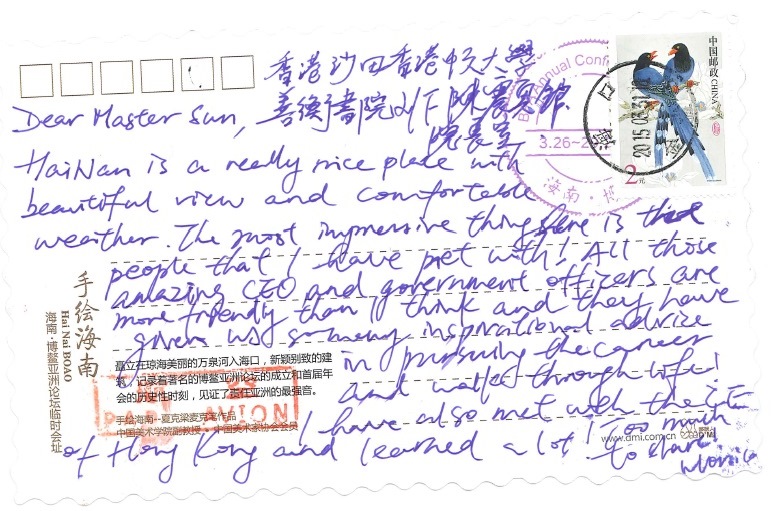 香港沙田香港中文大學
善衡書院山下陳震夏館
院長室
Dear Master Sun,
HaiNan is a really nice place with
beautiful view and comfortable
weather. The most impressive thing here is
people that I have met with! All those
amazing CEO and government officers are
more friendly than I think and they have
given us so many inspirational advise
in pursuing the career
and walk through life!
I have also met with the
of Hong Kong and learned a lot! Too much
to share!
Monica
Annual Conf
3.26-2
海南·博
中国邮政
CHINA
2元
2015.03.31
手绘海南
Hai Nai BOAO
海南·博鳌亚洲论坛临时会址
矗立在琼海美丽的万泉河入海口，新颖别致的建
筑，记录着著名的博鳌亚洲论坛的成立和首届年
会的历史性时刻，见证了责任亚洲的最强音。
手绘海南--夏克梁麦克笔作品
中国美术学院副教授 中国美术家协会会员
PAR AVION
www.dmi.com.cn